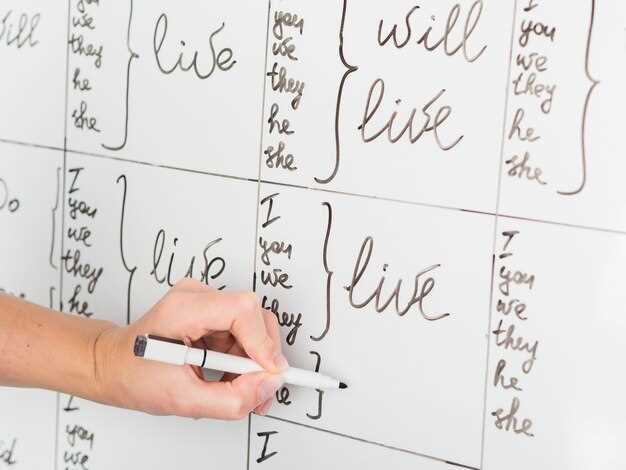 will
you
we
they
he
she
live
you
we
they
he
she
will
live
I
you
we
they
he
she
I
you
we
they
he
live
I
you
we
they
he
live
I
you
we
they
he
she
I
you
we
I